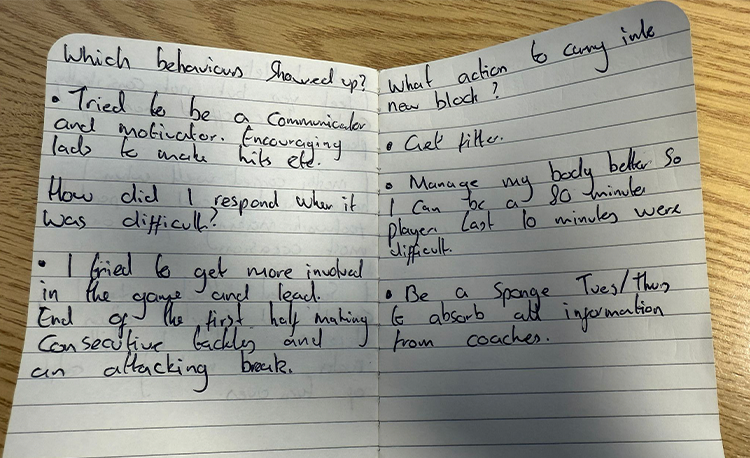 Which behaviours showed up?
• Tried to be a communicator
and motivator. Encouraging
lads to make hits etc.
How did I respond when it
was difficult?
• I tried to get more involved
in the game and lead.
End of the first half making
consecutive tackles and
an attacking break.
What action to carry into
new block?
• Get fitter.
• Manage my body better so
I can be a 80 minute
player last 10 minutes were
difficult.
• Be a sponge Tues/Thurs
to absorb all information
from coaches.